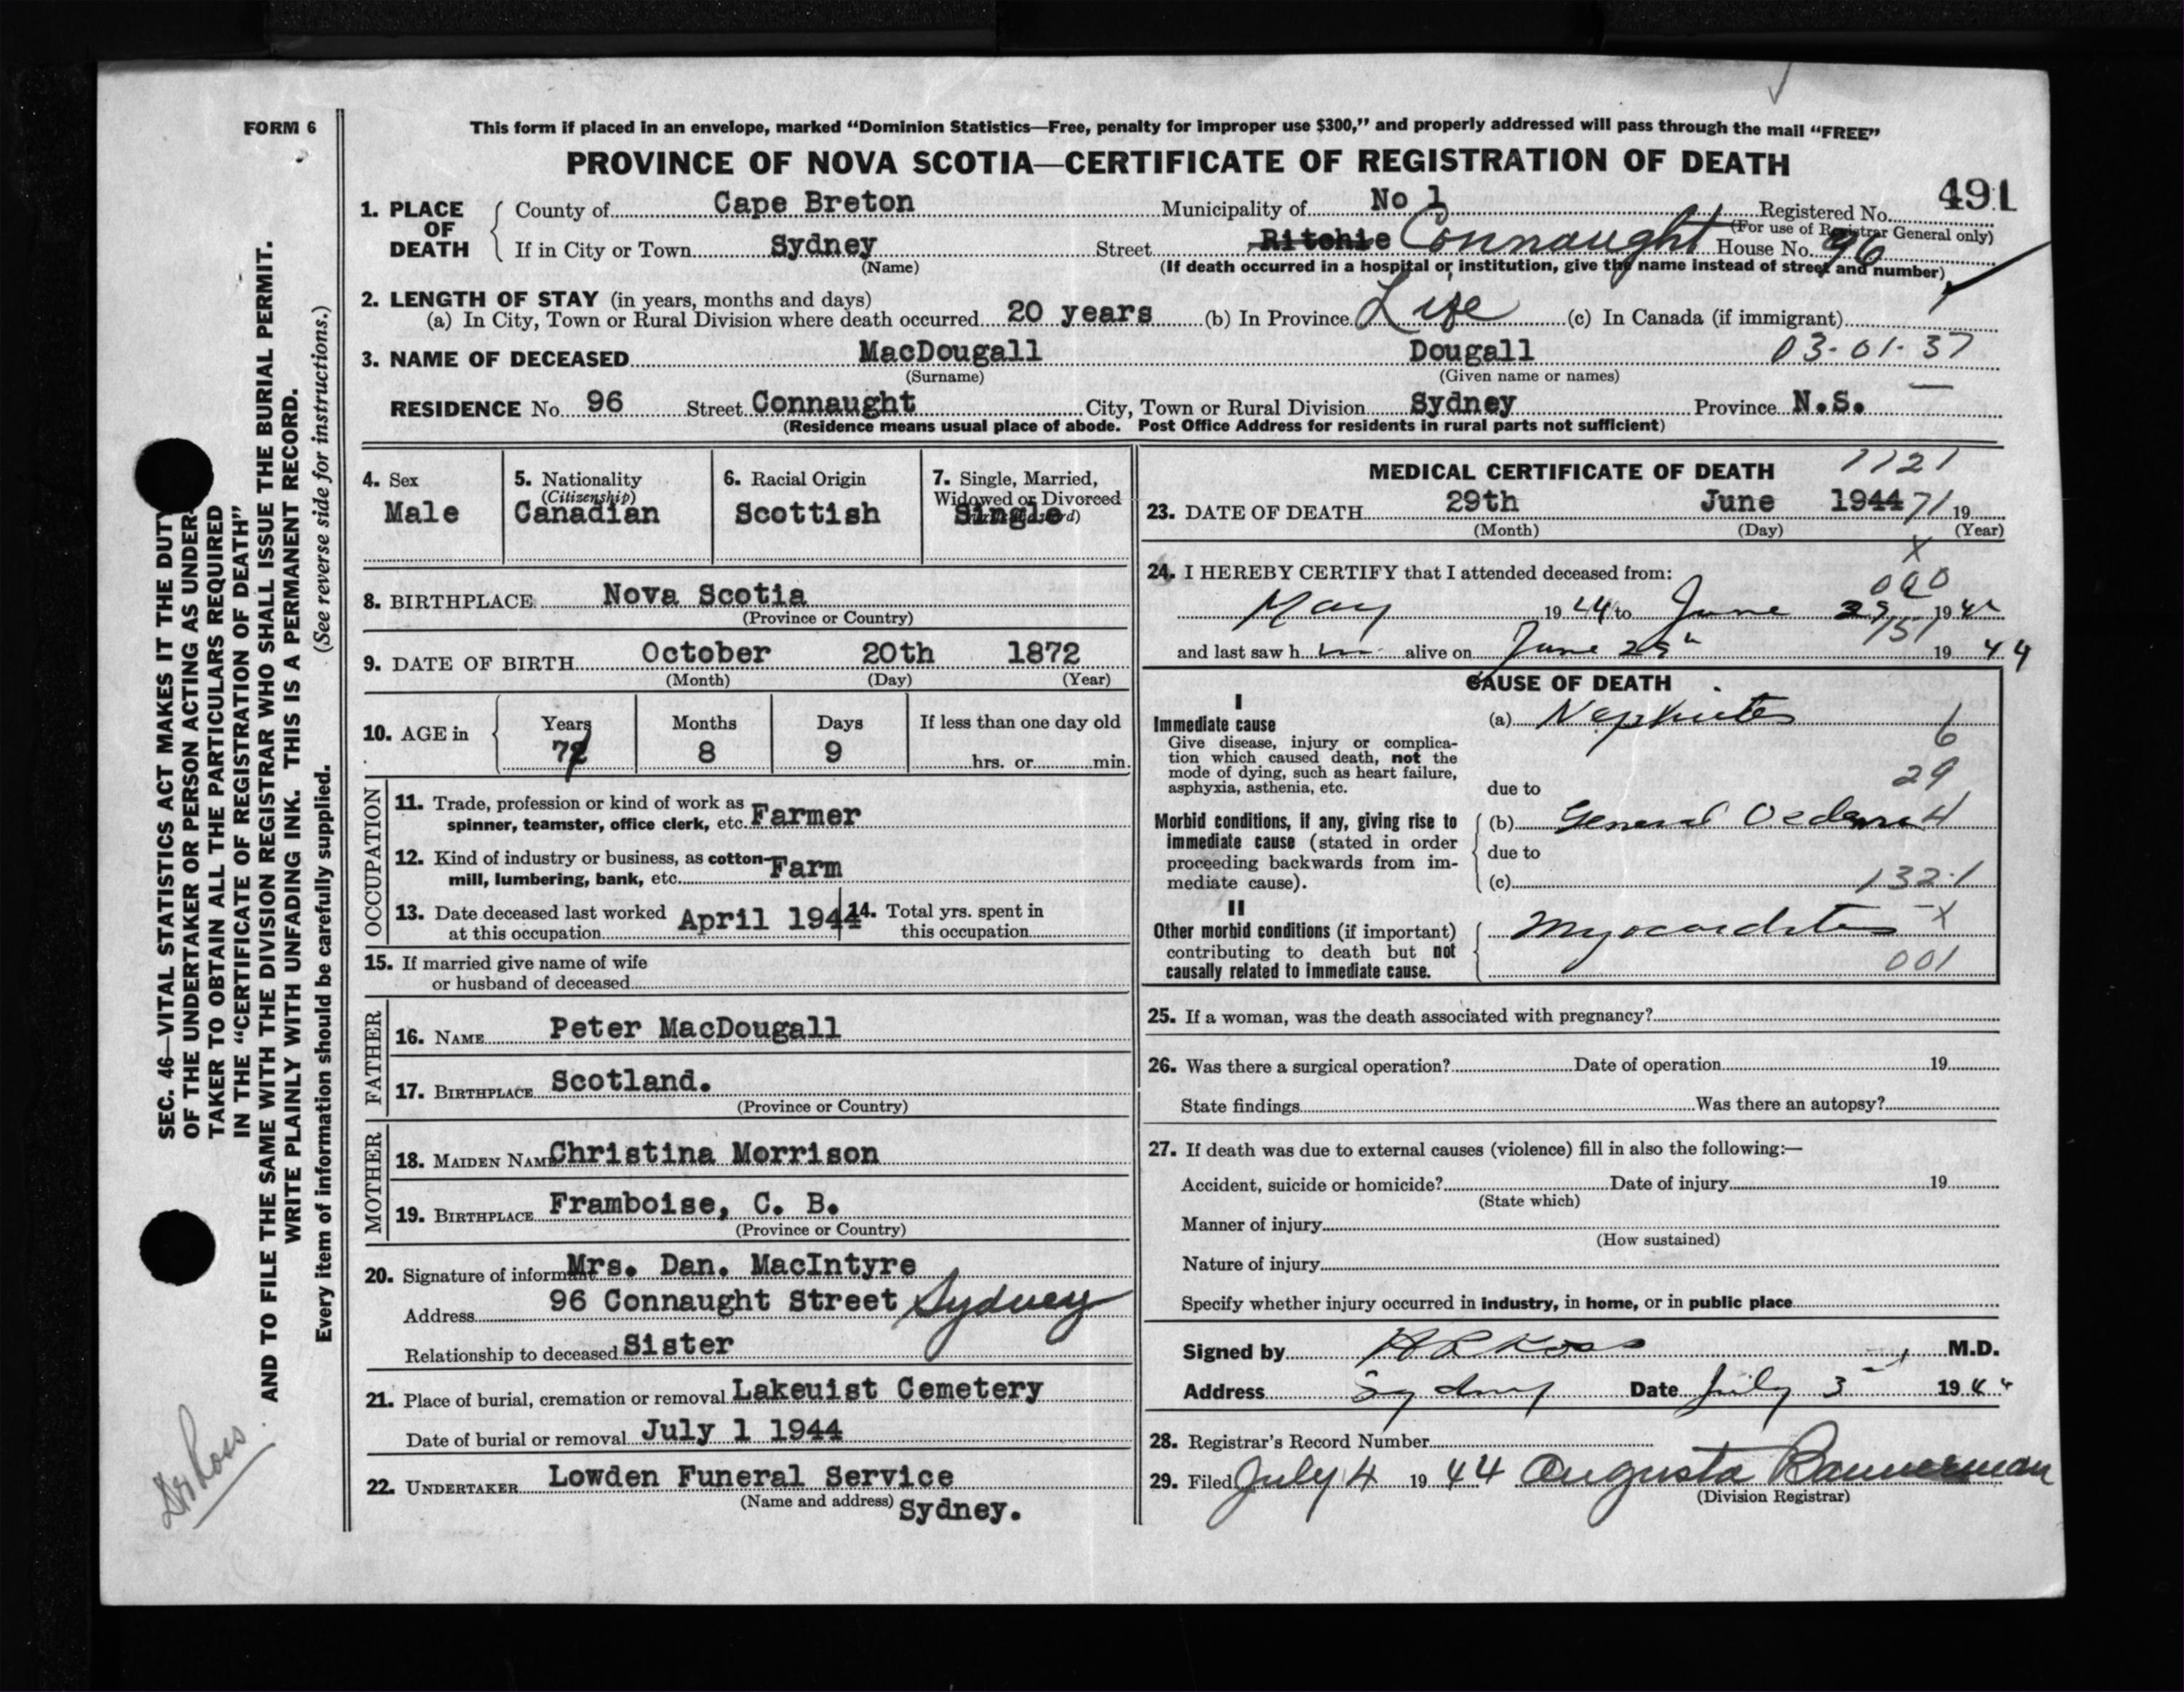 FORM 6
This form if placed in an envelope, marked “Dominion Statistics—Free, penalty for improper use $300,” and properly addressed will pass through the mail “FREE”
PROVINCE OF NOVA SCOTIA—CERTIFICATE OF REGISTRATION OF DEATH
491
1. PLACE OF DEATH County of Cape Breton Municipality of No 1 Registered No.
(For use of Registrar General only)
If in City or Town Sydney Street Ritchie Connaught House No. 96
(Name) (If death occurred in a hospital or institution, give the name instead of street and number)
2. LENGTH OF STAY (in years, months and days)
(a) In City, Town or Rural Division where death occurred 20 years (b) In Province Life (c) In Canada (if immigrant)
3. NAME OF DECEASED MacDougall Dougall 03-01-37
(Surname) (Given name or names)
RESIDENCE No. 96 Street Connaught City, Town or Rural Division Sydney Province N.S.
(Residence means usual place of abode. Post Office Address for residents in rural parts not sufficient)
4. Sex
Male
5. Nationality
(Citizenship)
Canadian
6. Racial Origin
Scottish
7. Single, Married,
Widowed or Divorced
Single
8. BIRTHPLACE Nova Scotia
(Province or Country)
9. DATE OF BIRTH October 20th 1872
(Month) (Day) (Year)
10. AGE in Years Months Days If less than one day old
8 9 hrs. or min.
OCCUPATION
11. Trade, profession or kind of work as
spinner, teamster, office clerk, etc. Farmer
12. Kind of industry or business, as cotton-
mill, lumbering, bank, etc. Farm
13. Date deceased last worked
at this occupation April 1944
14. Total yrs. spent in
this occupation
15. If married give name of wife
or husband of deceased
FATHER
16. NAME Peter MacDougall
17. BIRTHPLACE Scotland.
(Province or Country)
MOTHER
18. MAIDEN NAME Christina Morrison
19. BIRTHPLACE Framboise, C. B.
(Province or Country)
20. Signature of informant Mrs. Dan. MacIntyre
Address 96 Connaught Street Sydney
Relationship to deceased Sister
21. Place of burial, cremation or removal Lakeuist Cemetery
Date of burial or removal July 1 1944
22. UNDERTAKER Lowden Funeral Service
(Name and address) Sydney.
MEDICAL CERTIFICATE OF DEATH 1121
23. DATE OF DEATH 29th June 1944 71 19
(Month) (Day) (Year)
X
24. I HEREBY CERTIFY that I attended deceased from:
May 1944 to June 29 1944
151
and last saw h im alive on June 29th 19 44
CAUSE OF DEATH
I
Immediate cause
Give disease, injury or complica-
tion which caused death, not the
mode of dying, such as heart failure,
asphyxia, asthenia, etc.
(a) Nephritis
6
29
due to
Morbid conditions, if any, giving rise to
immediate cause (stated in order
proceeding backwards from im-
mediate cause).
(b) General Oedema 4
due to
(c) 132.1
II
Other morbid conditions (if important)
contributing to death but not
causally related to immediate cause.
Myocarditis X
001
25. If a woman, was the death associated with pregnancy?
26. Was there a surgical operation? Date of operation 19
State findings Was there an autopsy?
27. If death was due to external causes (violence) fill in also the following:—
Accident, suicide or homicide? Date of injury 19
(State which)
Manner of injury
(How sustained)
Nature of injury
Specify whether injury occurred in industry, in home, or in public place
Signed by Ross M.D.
Address Sydney Date July 3 1944
28. Registrar's Record Number
29. Filed July 4 19 44 Augusta Bannerman
(Division Registrar)
SEC. 46—VITAL STATISTICS ACT MAKES IT THE DUTY
OF THE UNDERTAKER OR PERSON ACTING AS UNDER-
TAKER TO OBTAIN ALL THE PARTICULARS REQUIRED
IN THE “CERTIFICATE OF REGISTRATION OF DEATH”
AND TO FILE THE SAME WITH THE DIVISION REGISTRAR WHO SHALL ISSUE THE BURIAL PERMIT.
WRITE PLAINLY WITH UNFADING INK. THIS IS A PERMANENT RECORD.
Every item of information should be carefully supplied. (See reverse side for instructions.)
Dr Ross